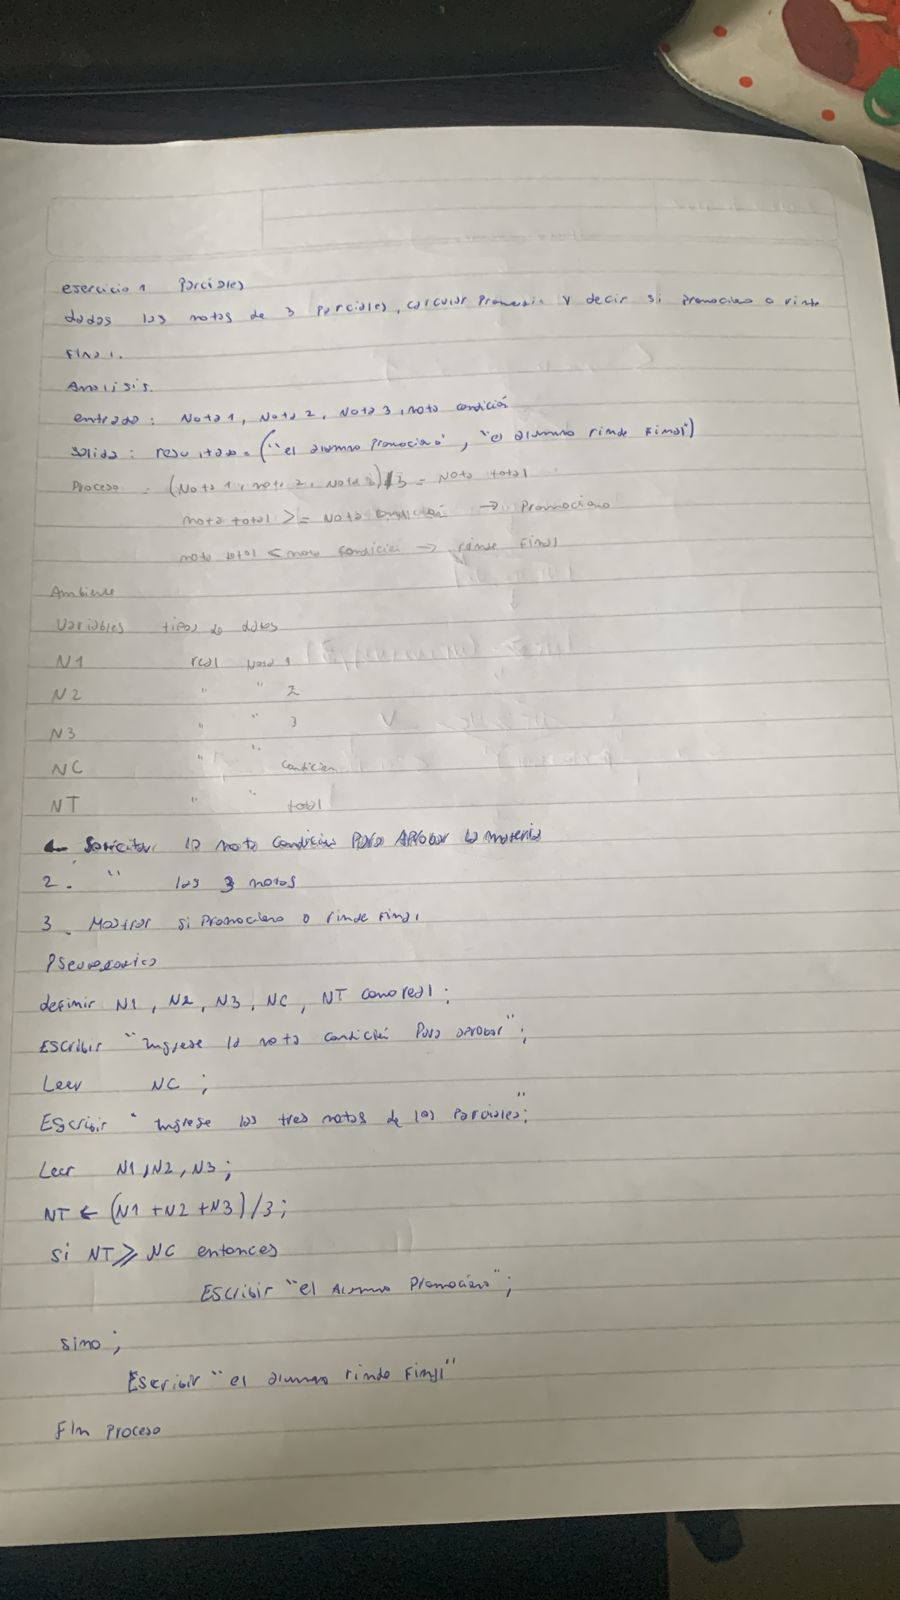 esercicio 1 Parciales
dadas las notas de 3 parciales, calcular promedio y decir si promociono o rinde
final.
Analisis.
entrada: Nota 1, Nota 2, Nota 3, nota condición
salida: resultado = ("el alumno promociono", "el alumno rinde final")
Proceso = (Nota 1, nota 2, Nota 3)/3 = Nota total
nota total >= Nota condición → promociono
nota total < nota condicion → rinde final
Ambiente
Variables tipos de datos
N1 real Nota 1
N2 " " 2
N3 " " 3
NC " " condicion
NT " " total
Solicitar la nota condicion para aprobar la materia
2. " las 3 notas
3. Mostrar si promociono o rinde final
definir N1, N2, N3, NC, NT como real;
Escribir "ingrese la nota condición para aprobar";
Leer NC;
Escribir "ingrese las tres notas de los parciales";
Leer N1, N2, N3;
NT ← (N1 + N2 + N3)/3;
si NT ≥ NC entonces
Escribir "el Alumno Promociono";
sino;
Escribir "el alumno rinde final"
Fin Proceso